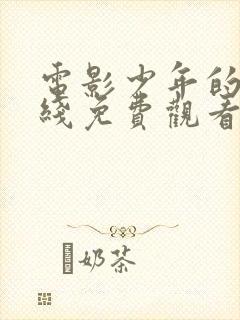 電影少年的
綫免費觀看
奶茶